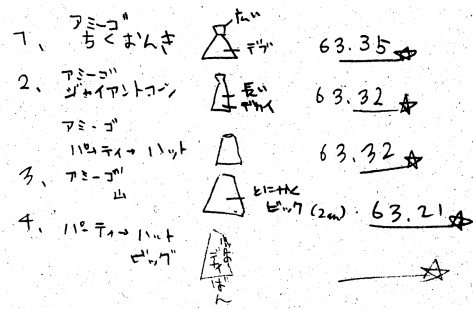 1、 アミーゴ
ちくおんき
デブ
63.35☆
2、 アミーゴ
ジャイアントコーン
長い
デカイ
63.32☆
アミーゴ
パーティーハット
63.32☆
3、 アミーゴ
山
とにかく
ビック(2cm)
63.21☆
4、 パーティーハット
ビッグ
☆